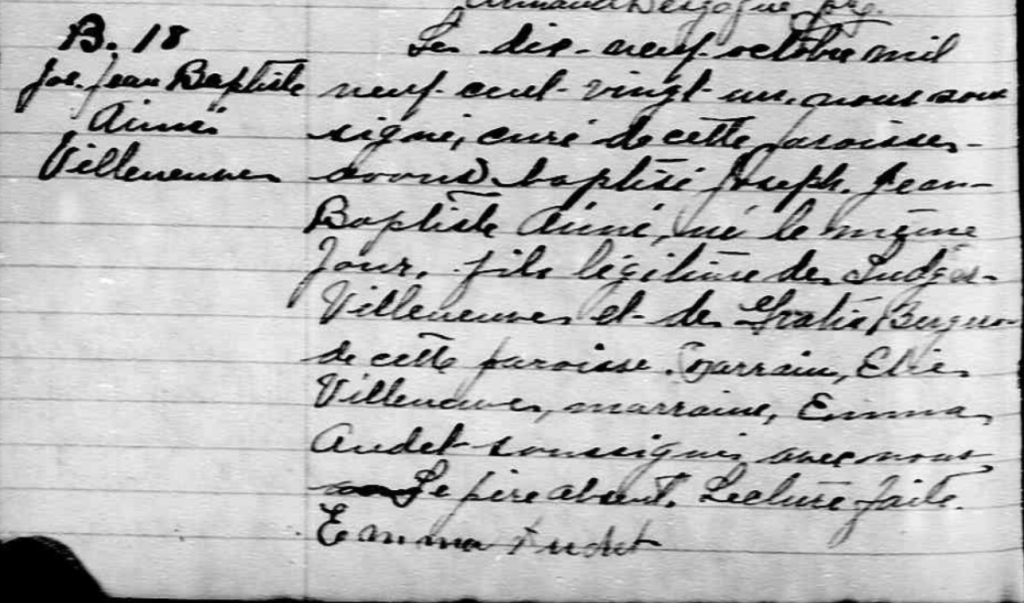 B. 18
Jos. Jean Baptiste
Aimé
Villeneuve
Le dix-neuf octobre mil
neuf cent vingt un, nous sous
signé, curé de cette paroisse
avons baptisé Joseph Jean-
Baptiste Aimé, né le même
jour, fils légitime de
Villeneuve et de
de cette paroisse. Parrain, Elie
Villeneuve, marraine, Emma
Audet soussignés avec nous
Le père absent. Lecture faite.
Emma Audet